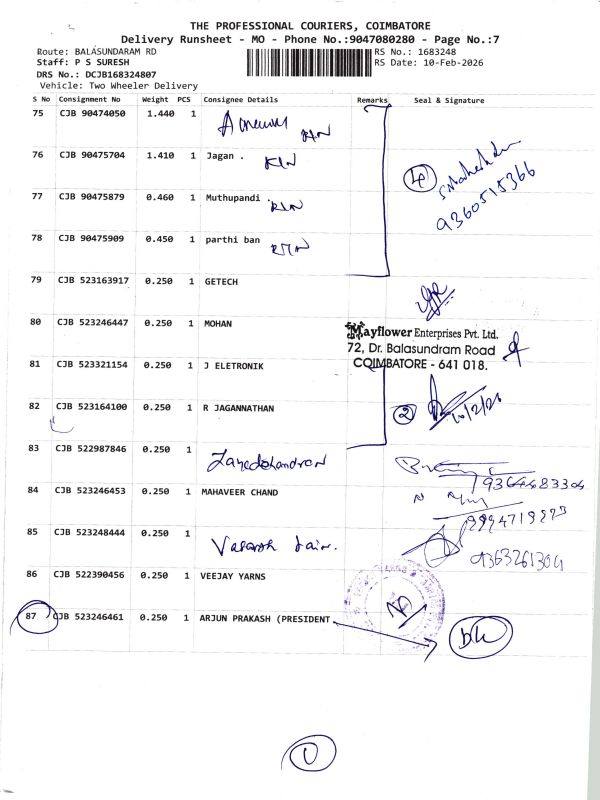 THE PROFESSIONAL COURIERS, COIMBATORE
Delivery Runsheet - MO - Phone No.:9047080280 - Page No.:7
Route: BALASUNDARAM RD
Staff: P S SURESH
DRS No.: DCJB168324807
Vehicle: Two Wheeler Delivery
RS No.: 1683248
RS Date: 10-Feb-2026
S No Consignment No Weight PCS Consignee Details Remarks Seal & Signature
75 CJB 90474050 1.440 1
76 CJB 90475704 1.410 1 Jagan .
77 CJB 90475879 0.460 1 Muthupandi .
9360515366
78 CJB 90475909 0.450 1 parthi ban
79 CJB 523163917 0.250 1 GETECH
80 CJB 523246447 0.250 1 MOHAN
Mayflower Enterprises Pvt. Ltd.
72, Dr. Balasundram Road
COIMBATORE - 641 018.
81 CJB 523321154 0.250 1 J ELETRONIK
82 CJB 523164100 0.250 1 R JAGANNATHAN
2 10/2/26
83 CJB 522987846 0.250 1
84 CJB 523246453 0.250 1 MAHAVEER CHAND
85 CJB 523248444 0.250 1 Vasanth Jain.
9363261304
86 CJB 522390456 0.250 1 VEEJAY YARNS
87 CJB 523246461 0.250 1 ARJUN PRAKASH (PRESIDENT